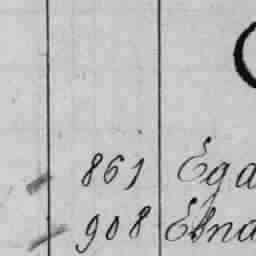 861 Ega
908 Esna